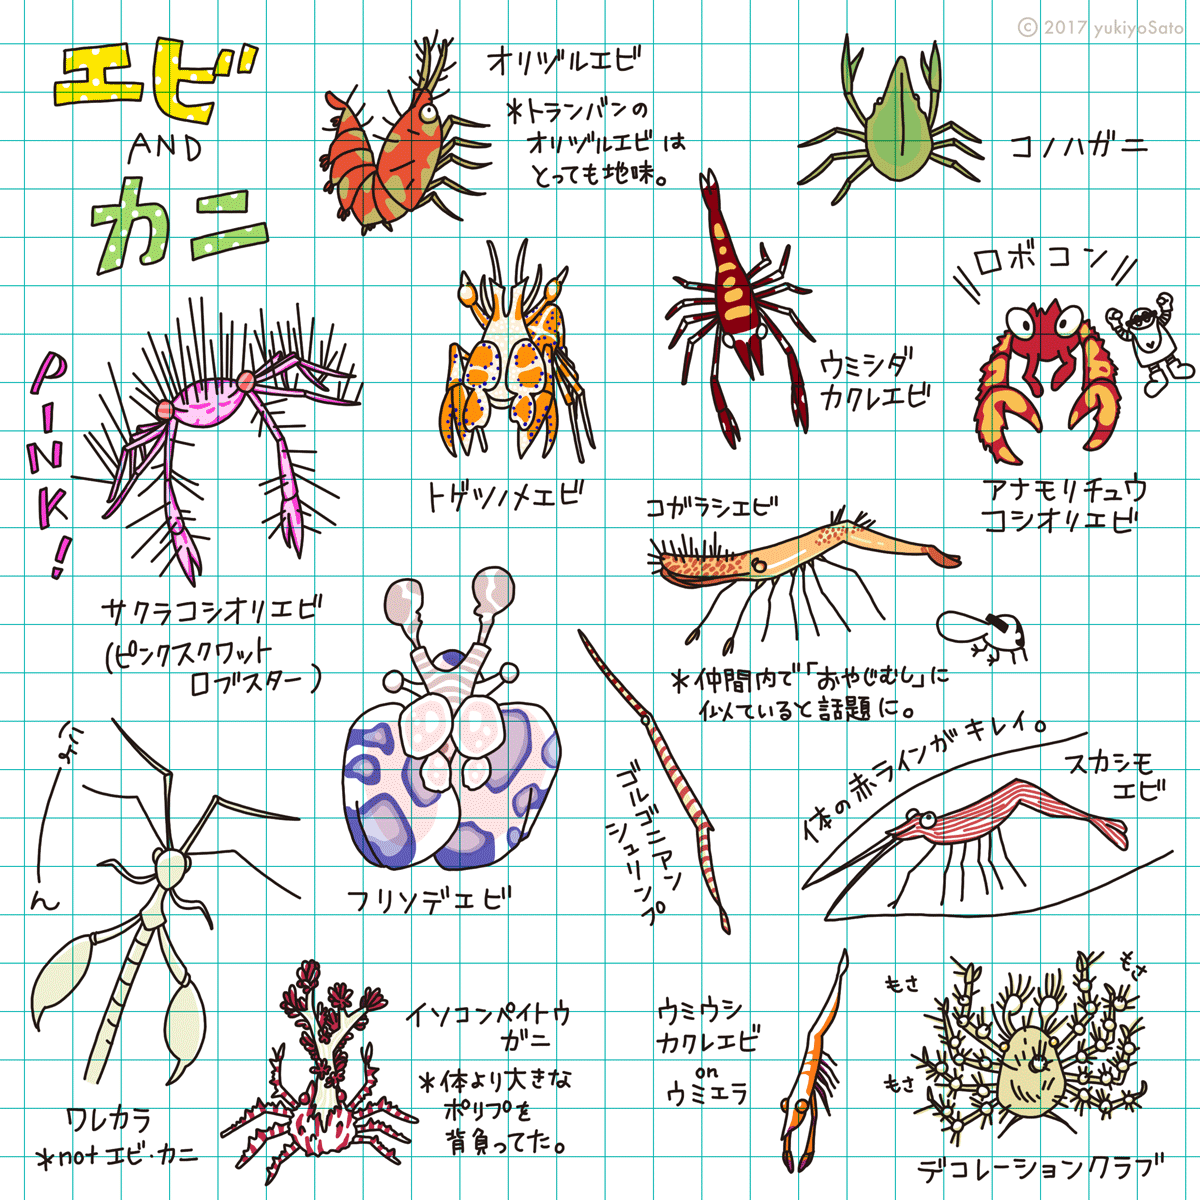 © 2017 yukiyoSato
エビ
AND
カニ
オリヅルエビ
*トランバンの
オリヅルエビは
とっても地味。
コノハガニ
PINK!
サクラコシオリエビ
(ピンクスクワット
ロブスター)
トゲツノメエビ
ウミシダ
カクレエビ
ロボコン
アナモリチュウ
コシオリエビ
コガラシエビ
*仲間内で「おやじむし」に
似ていると話題に。
フリソデエビ
ゴルゴニアン
シュリンプ
体の赤ラインがキレイ。
スカシモ
エビ
ワレカラ
*notエビ・カニ
イソコンペイトウ
ガニ
*体より大きな
ポリプを
背負ってた。
ウミウシ
カクレエビ
on
ウミエラ
もさ
もさ
もさ
デコレーションクラブ